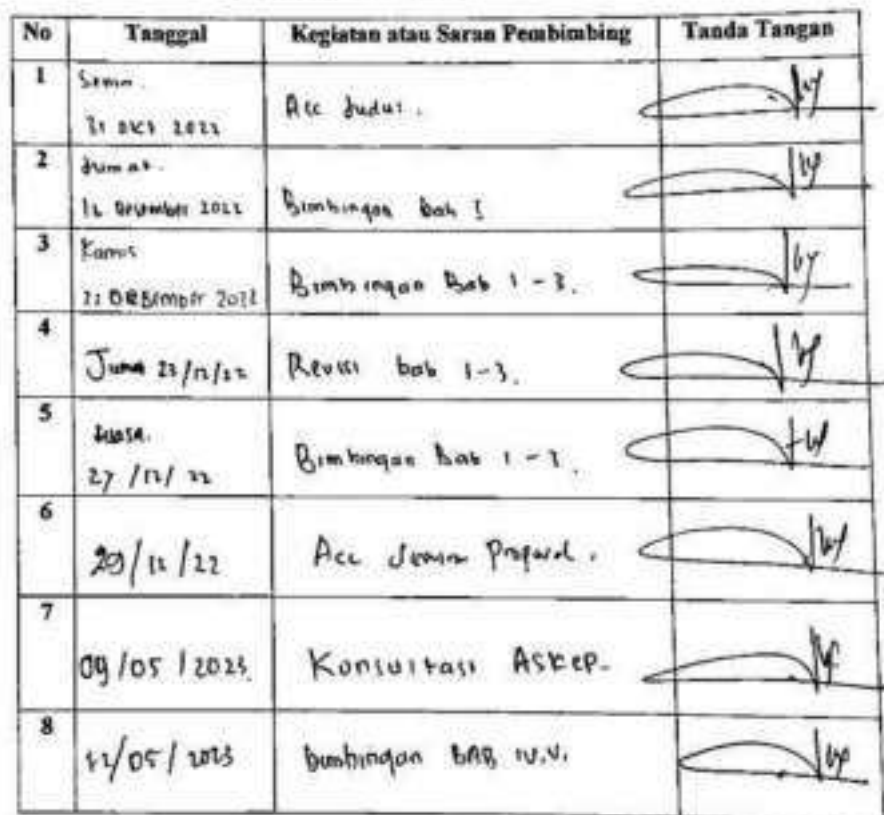 No Tanggal Kegiatan atau Saran Pembimbing Tanda Tangan
1 Senin.
31 Okt 2022 Acc Judul.
2 Jumat.
Desember 2022 Bimbingan Bab I
3 Kamis
Desember 2022 Bimbingan Bab 1-3.
4
Jumat 23/12/22 Revisi bab 1-3.
5
Selasa.
27/12/22 Bimbingan Bab 1-3.
6
29/12/22 Acc Proposal.
7
09/05/2023. Konsultasi Askep.
8
12/05/2023 bimbingan BAB IV.V.